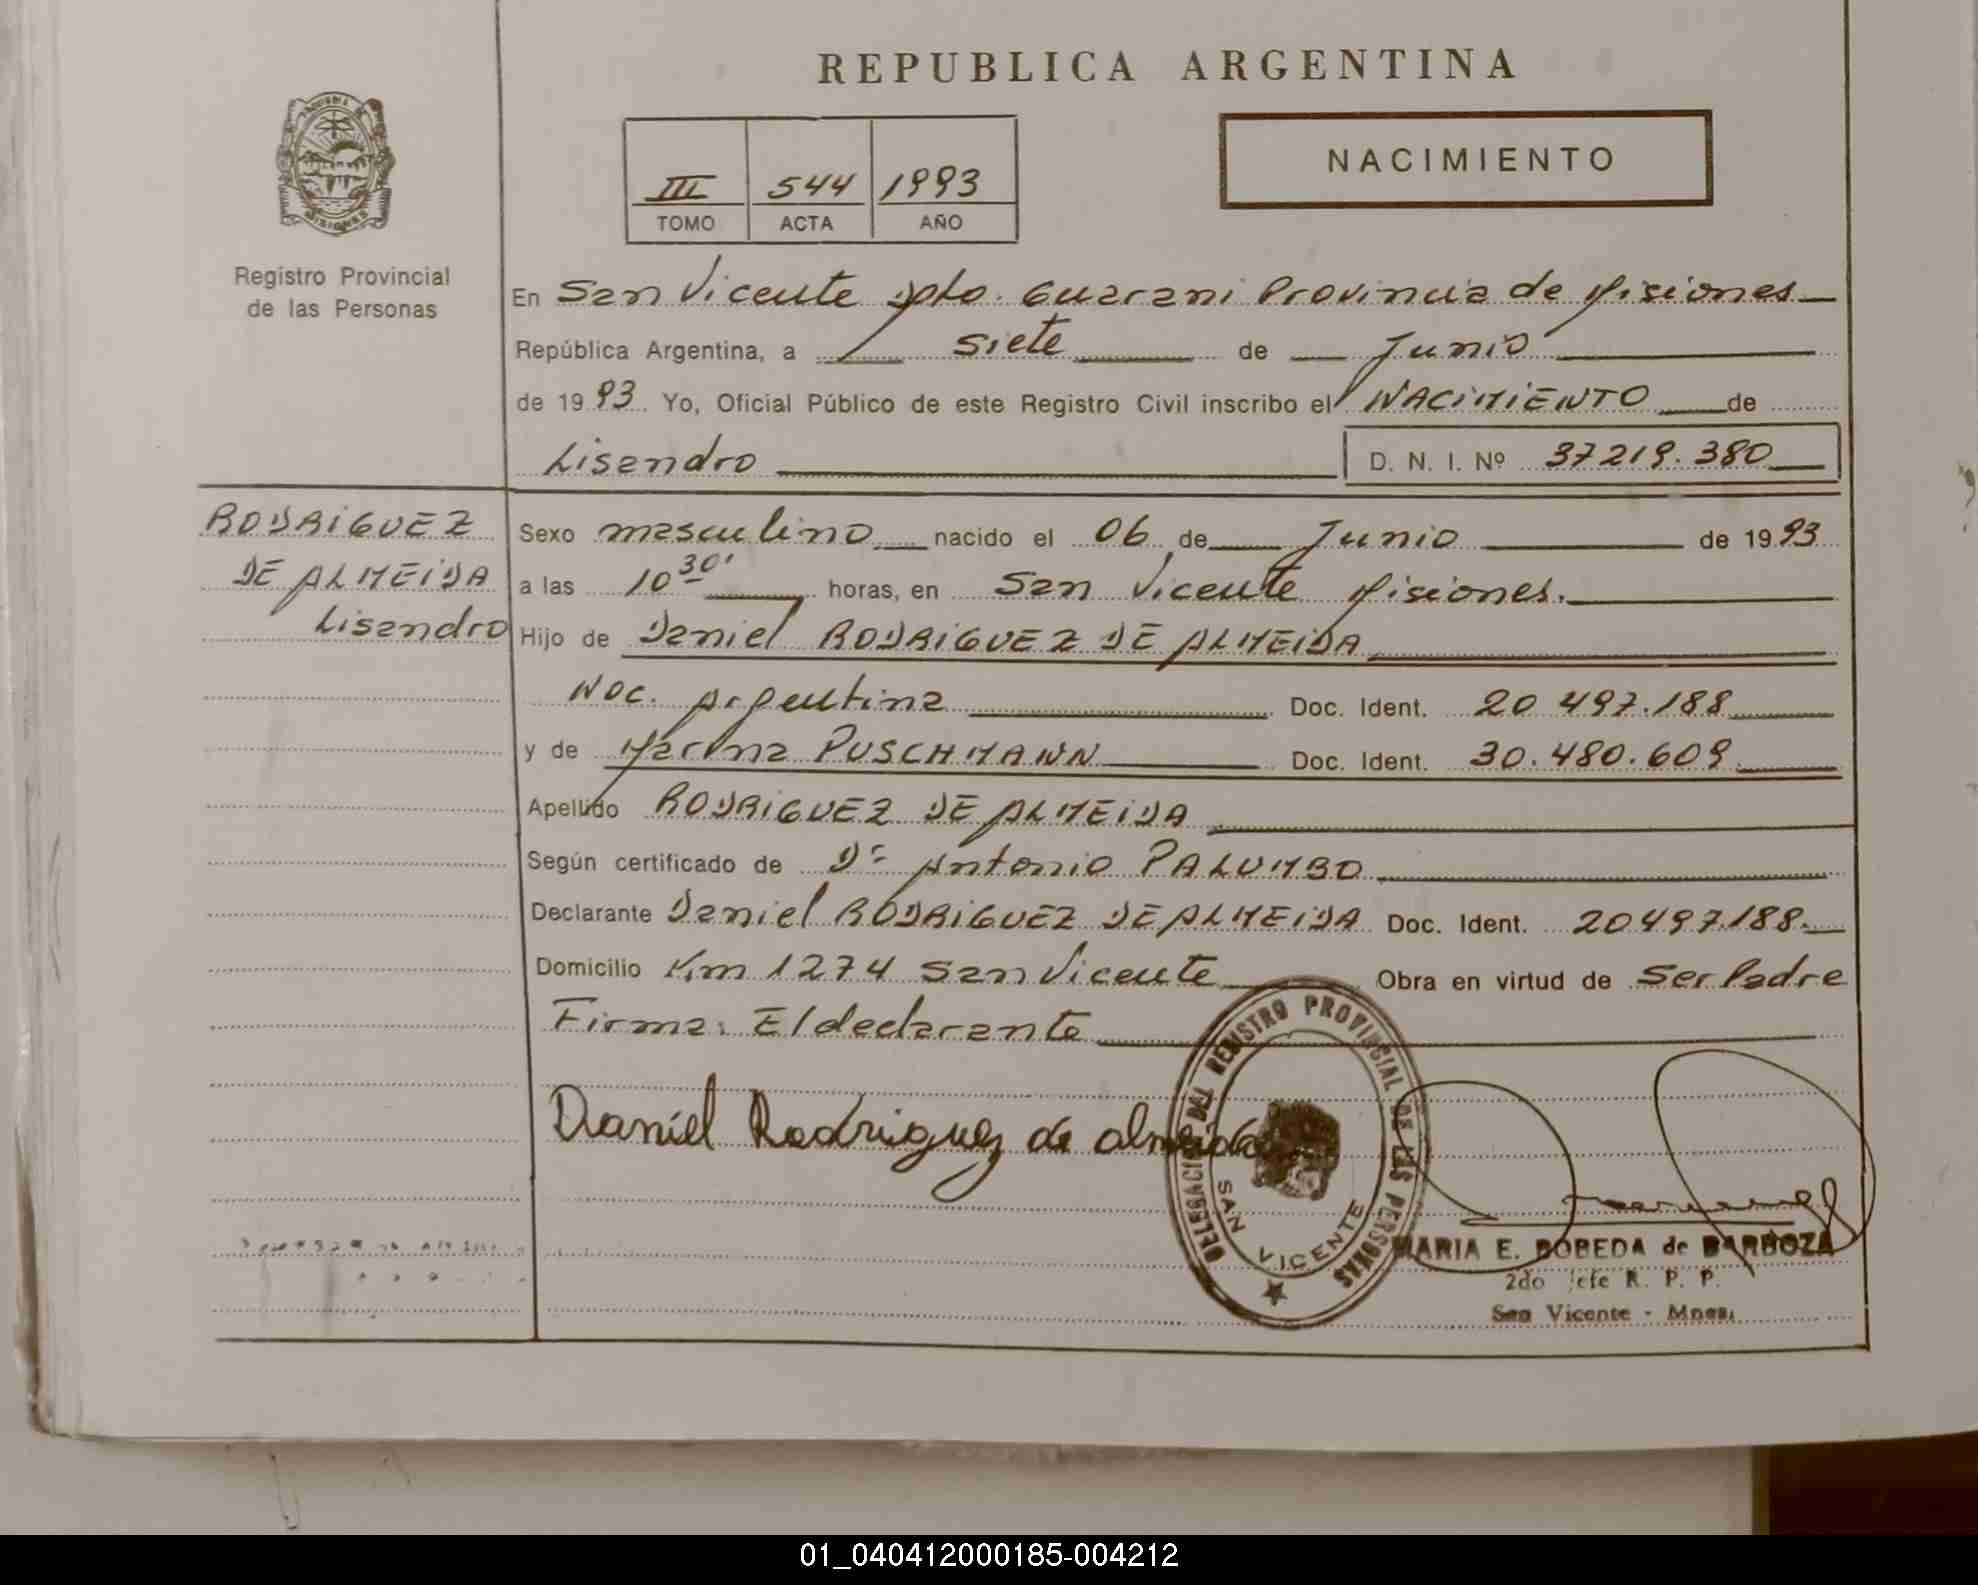 REPUBLICA ARGENTINA
III 544 1993
TOMO ACTA AÑO
NACIMIENTO
Registro Provincial
de las Personas
En San Vicente Dpto. Guarani Provincia de Misiones
República Argentina, a siete de Junio
de 1993 Yo, Oficial Público de este Registro Civil inscribo el NACIMIENTO de
Lisandro D. N. I. Nº 37219.380
RODRIGUEZ
DE ALMEIDA
Lisandro
Sexo masculino nacido el 06 de Junio de 1993
a las 10 30' horas, en San Vicente Misiones.
Hijo de Daniel RODRIGUEZ DE ALMEIDA
Nac. Argentina Doc. Ident. 20 497.188
y de Marina PUSCHMANN Doc. Ident. 30.480.609
Apellido RODRIGUEZ DE ALMEIDA
Según certificado de Dr Antonio PALUMBO
Declarante Daniel RODRIGUEZ DE ALMEIDA Doc. Ident. 20497.188.
Domicilio Km 1274 San Vicente Obra en virtud de Ser Padre
Firma: El declarante
Daniel Rodriguez de almeida
DELEGACION DEL REGISTRO PROVINCIAL DE LAS PERSONAS
SAN VICENTE
MARIA E. BOBEDA de BARBOZA
2do Jefe R. P. P.
San Vicente - Mnes.
01_040412000185-004212